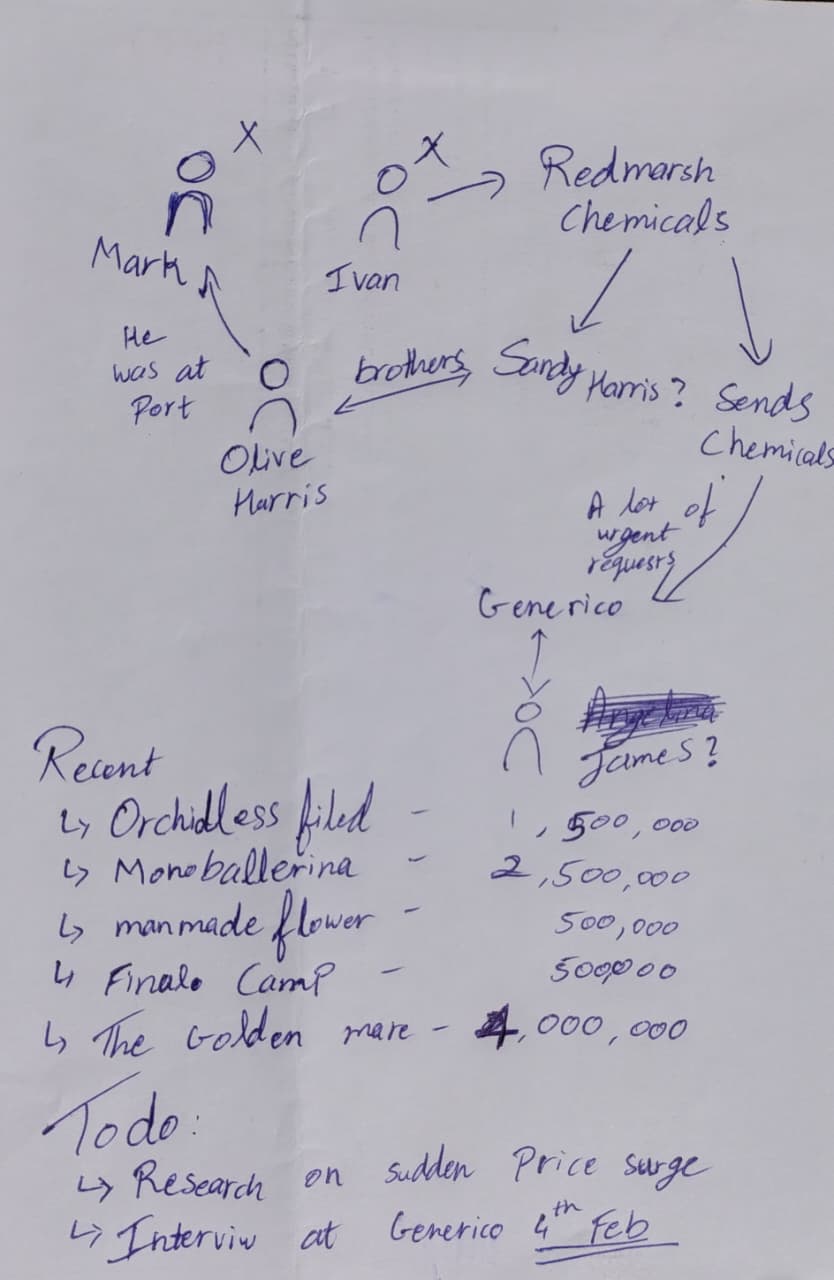 X
X
Redmarsh
Chemicals
Mark
Ivan
He
was at
Port
brothers
Sandy Harris?
Sends
Chemicals
Olive
Harris
A lot of
urgent
requests
Generico
Angelina
James?
Recent
↳ Orchidless filed - 1,500,000
↳ Monoballerina - 2,500,000
↳ manmade flower - 500,000
↳ Finale Camp - 500,000
↳ The Golden mare - 4,000,000
Todo:
↳ Research on sudden Price surge
↳ Interviw at Generico 4th Feb